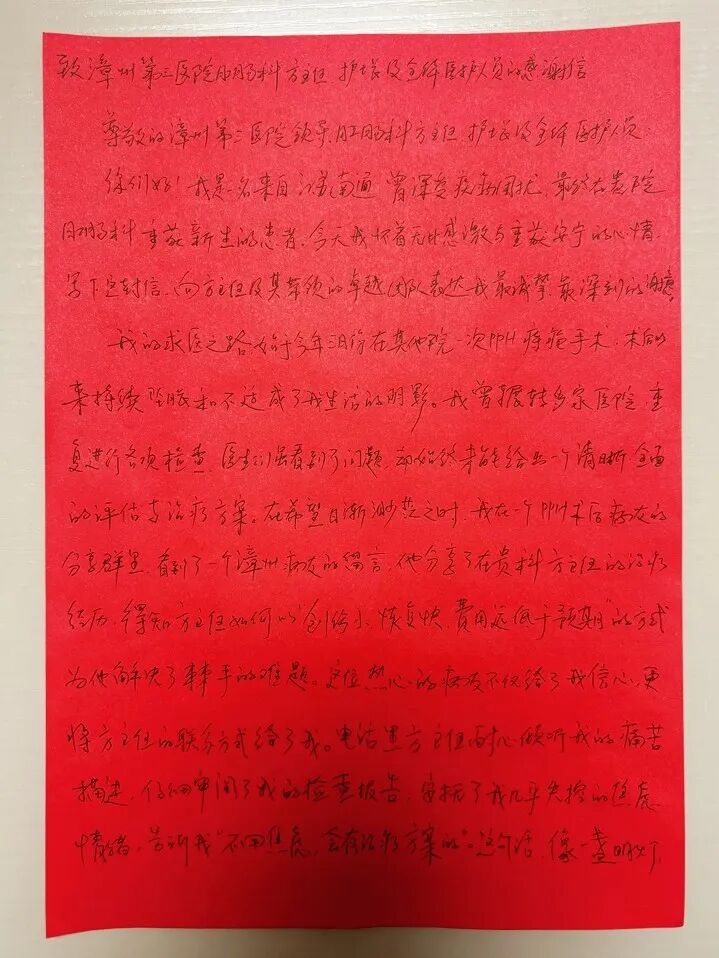 致漳州第三医院肛肠科方主任、护士长及全体医护人员的感谢信
尊敬的漳州第三医院领导、肛肠科方主任、护士长及全体医护人员:
你们好!我是一名来自江苏南通、曾深受疾病困扰、最终在贵院
肛肠科重获新生的患者。今天我怀着无比感激与重获安宁的心情,
写下这封信,向方主任及其带领的卓越团队表达我最诚挚、最深刻的谢意
我的求医之路,始于今年3月份在其他院一次PPH痔疮手术,术后以
来持续坠胀和不适成了我生活的阴影。我曾辗转多家医院,重
复进行各项检查,医生们虽看到了问题,却始终未能给出一个清晰、全面
的评估与治疗方案。在希望日渐渺茫之时,我在一个PPH术后病友的
分享群里,看到了一个漳州病友的留言,他分享了在贵科方主任的治疗
经历,得知方主任如何以"创伤小、恢复快、费用远低于预期"的方式
为他解决了棘手的难题。这位热心的病友不仅给了我信心,更
将方主任的联系方式给了我。电话里方主任耐心倾听我的痛苦
描述,仔细审阅了我的检查报告,安抚了我几乎失控的焦虑
情绪,告诉我"不用焦虑,会有治疗方案的"。这句话,像一盏明灯,